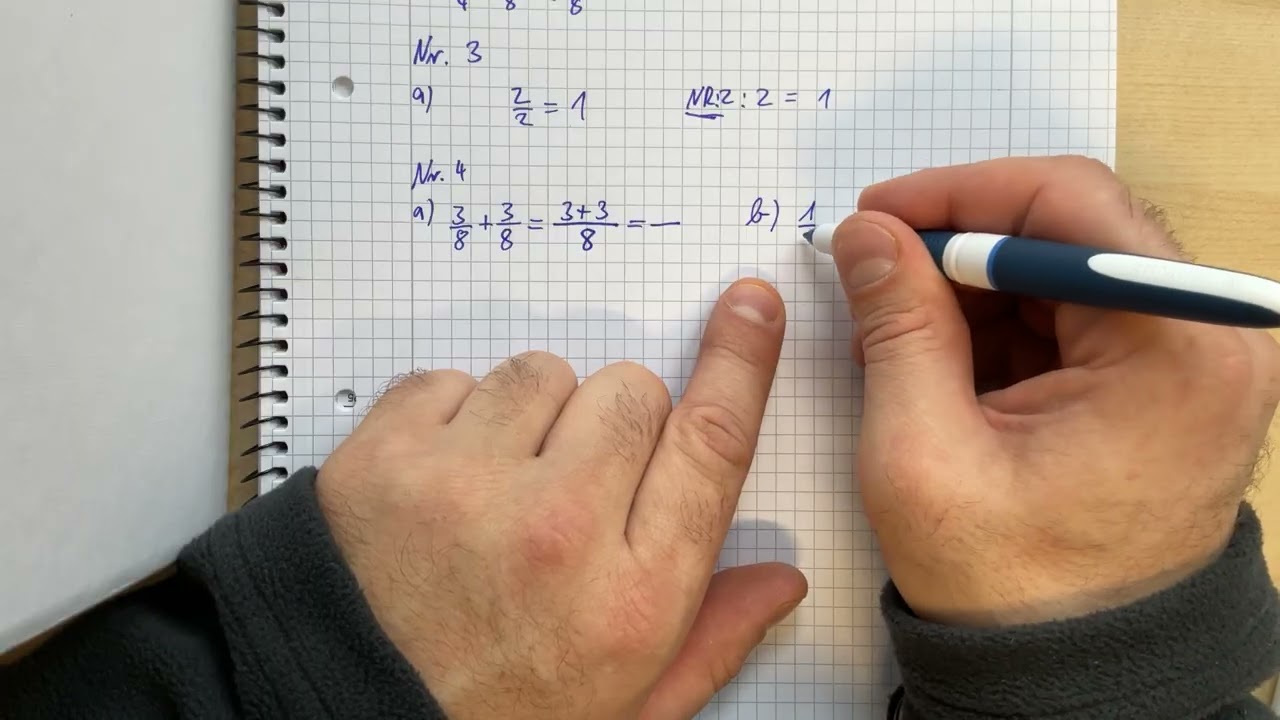 8 8
Nr. 3
a) 2/2 = 1 NR: 2 : 2 = 1
Nr. 4
a) 3/8 + 3/8 = 3+3/8 = — b) 1